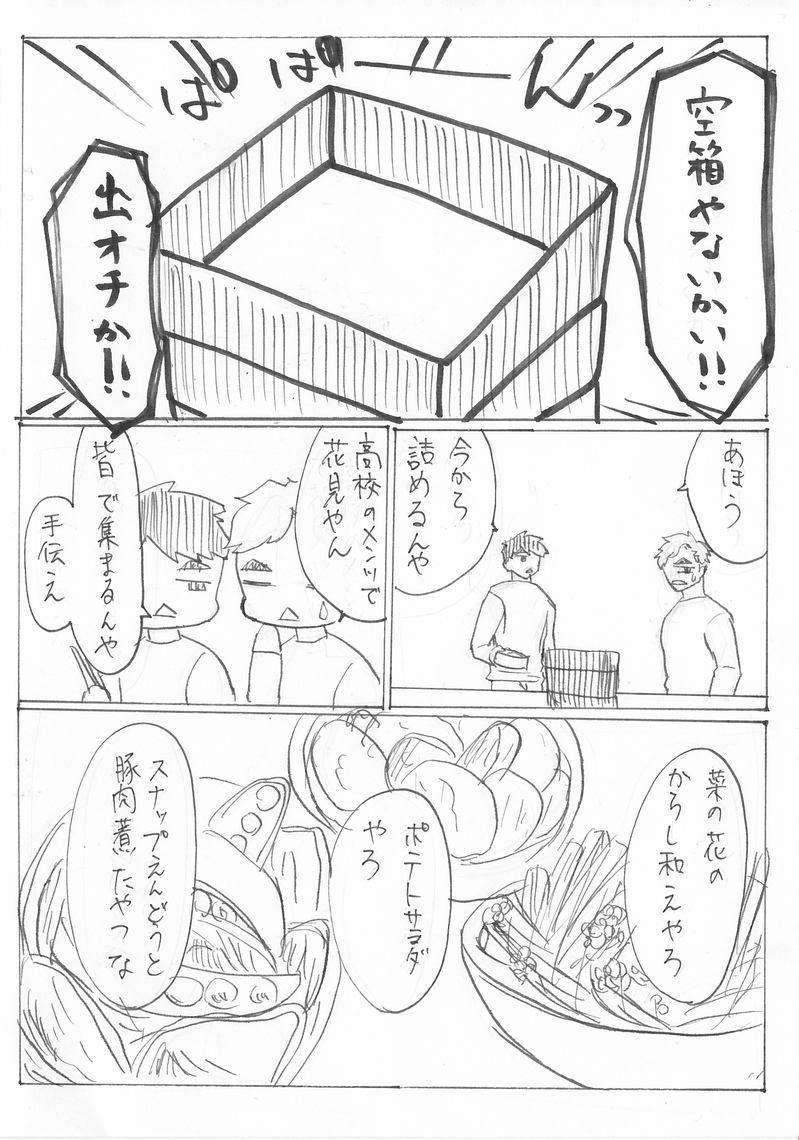 ぱぱーんっっ
空箱やないかい!!
出オチか!!
あほう
今から
詰めるんや
高校のメンツで
花見やん
皆で集まるんや
手伝え
菜の花の
からし和えやろ
ポテトサラダ
やろ
スナップえんどうと
豚肉煮たやつな